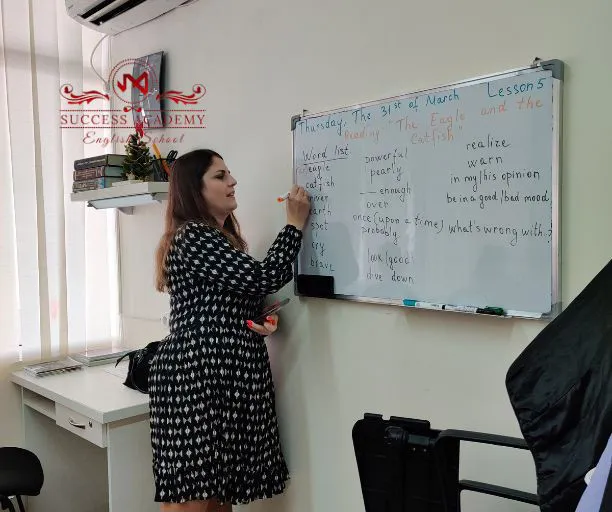 SUCCESS ACADEMY
English School
Thursday, The 31st of March Lesson 5
Reading "The Eagle and the
Catfish"
Word list
eagle
catfish
river
earth
spot
cry
brave
powerful
pearly
__ enough
over
once (upon a time)
probably
look/good
dive down
realize
warn
in my/his opinion
be in a good/bad mood
what's wrong with..?